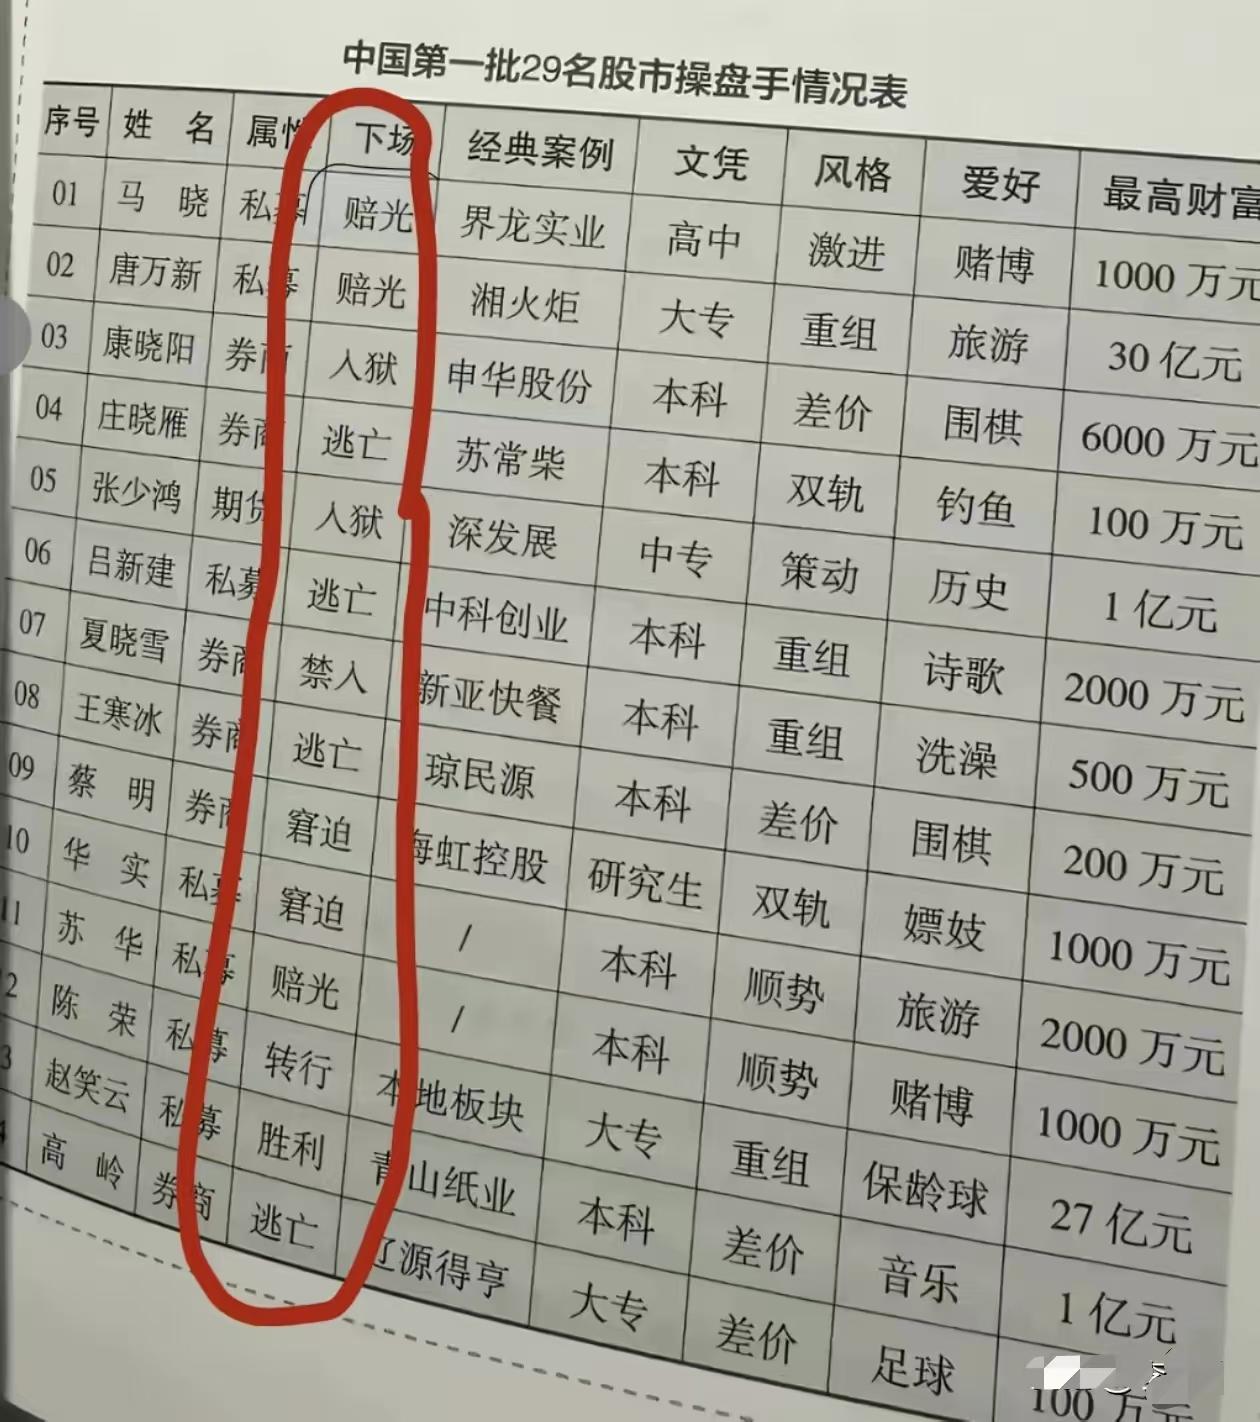 中国第一批29名股市操盘手情况表
序号 姓 名 属性 下场 经典案例 文凭 风格 爱好 最高财富
01 马 晓 私募 赔光 界龙实业 高中 激进 赌博 1000 万元
02 唐万新 私募 赔光 湘火炬 大专 重组 旅游 30 亿元
03 康晓阳 券商 入狱 申华股份 本科 差价 围棋 6000 万元
04 庄晓雁 券商 逃亡 苏常柴 本科 双轨 钓鱼 100 万元
05 张少鸿 期货 入狱 深发展 中专 策动 历史 1 亿元
06 吕新建 私募 逃亡 中科创业 本科 重组 诗歌 2000 万元
07 夏晓雪 券商 禁入 新亚快餐 本科 重组 洗澡 500 万元
08 王寒冰 券商 逃亡 琼民源 本科 差价 围棋 200 万元
09 蔡 明 券商 窘迫 海虹控股 研究生 双轨 嫖妓 1000 万元
10 华 实 私募 窘迫 / 本科 顺势 旅游 2000 万元
11 苏 华 私募 赔光 / 本科 顺势 赌博 1000 万元
2 陈 荣 私募 转行 本地板块 大专 重组 保龄球 27 亿元
3 赵笑云 私募 胜利 青山纸业 本科 差价 音乐 1 亿元
4 高 岭 券商 逃亡 辽源得亨 大专 差价 足球 100 万元